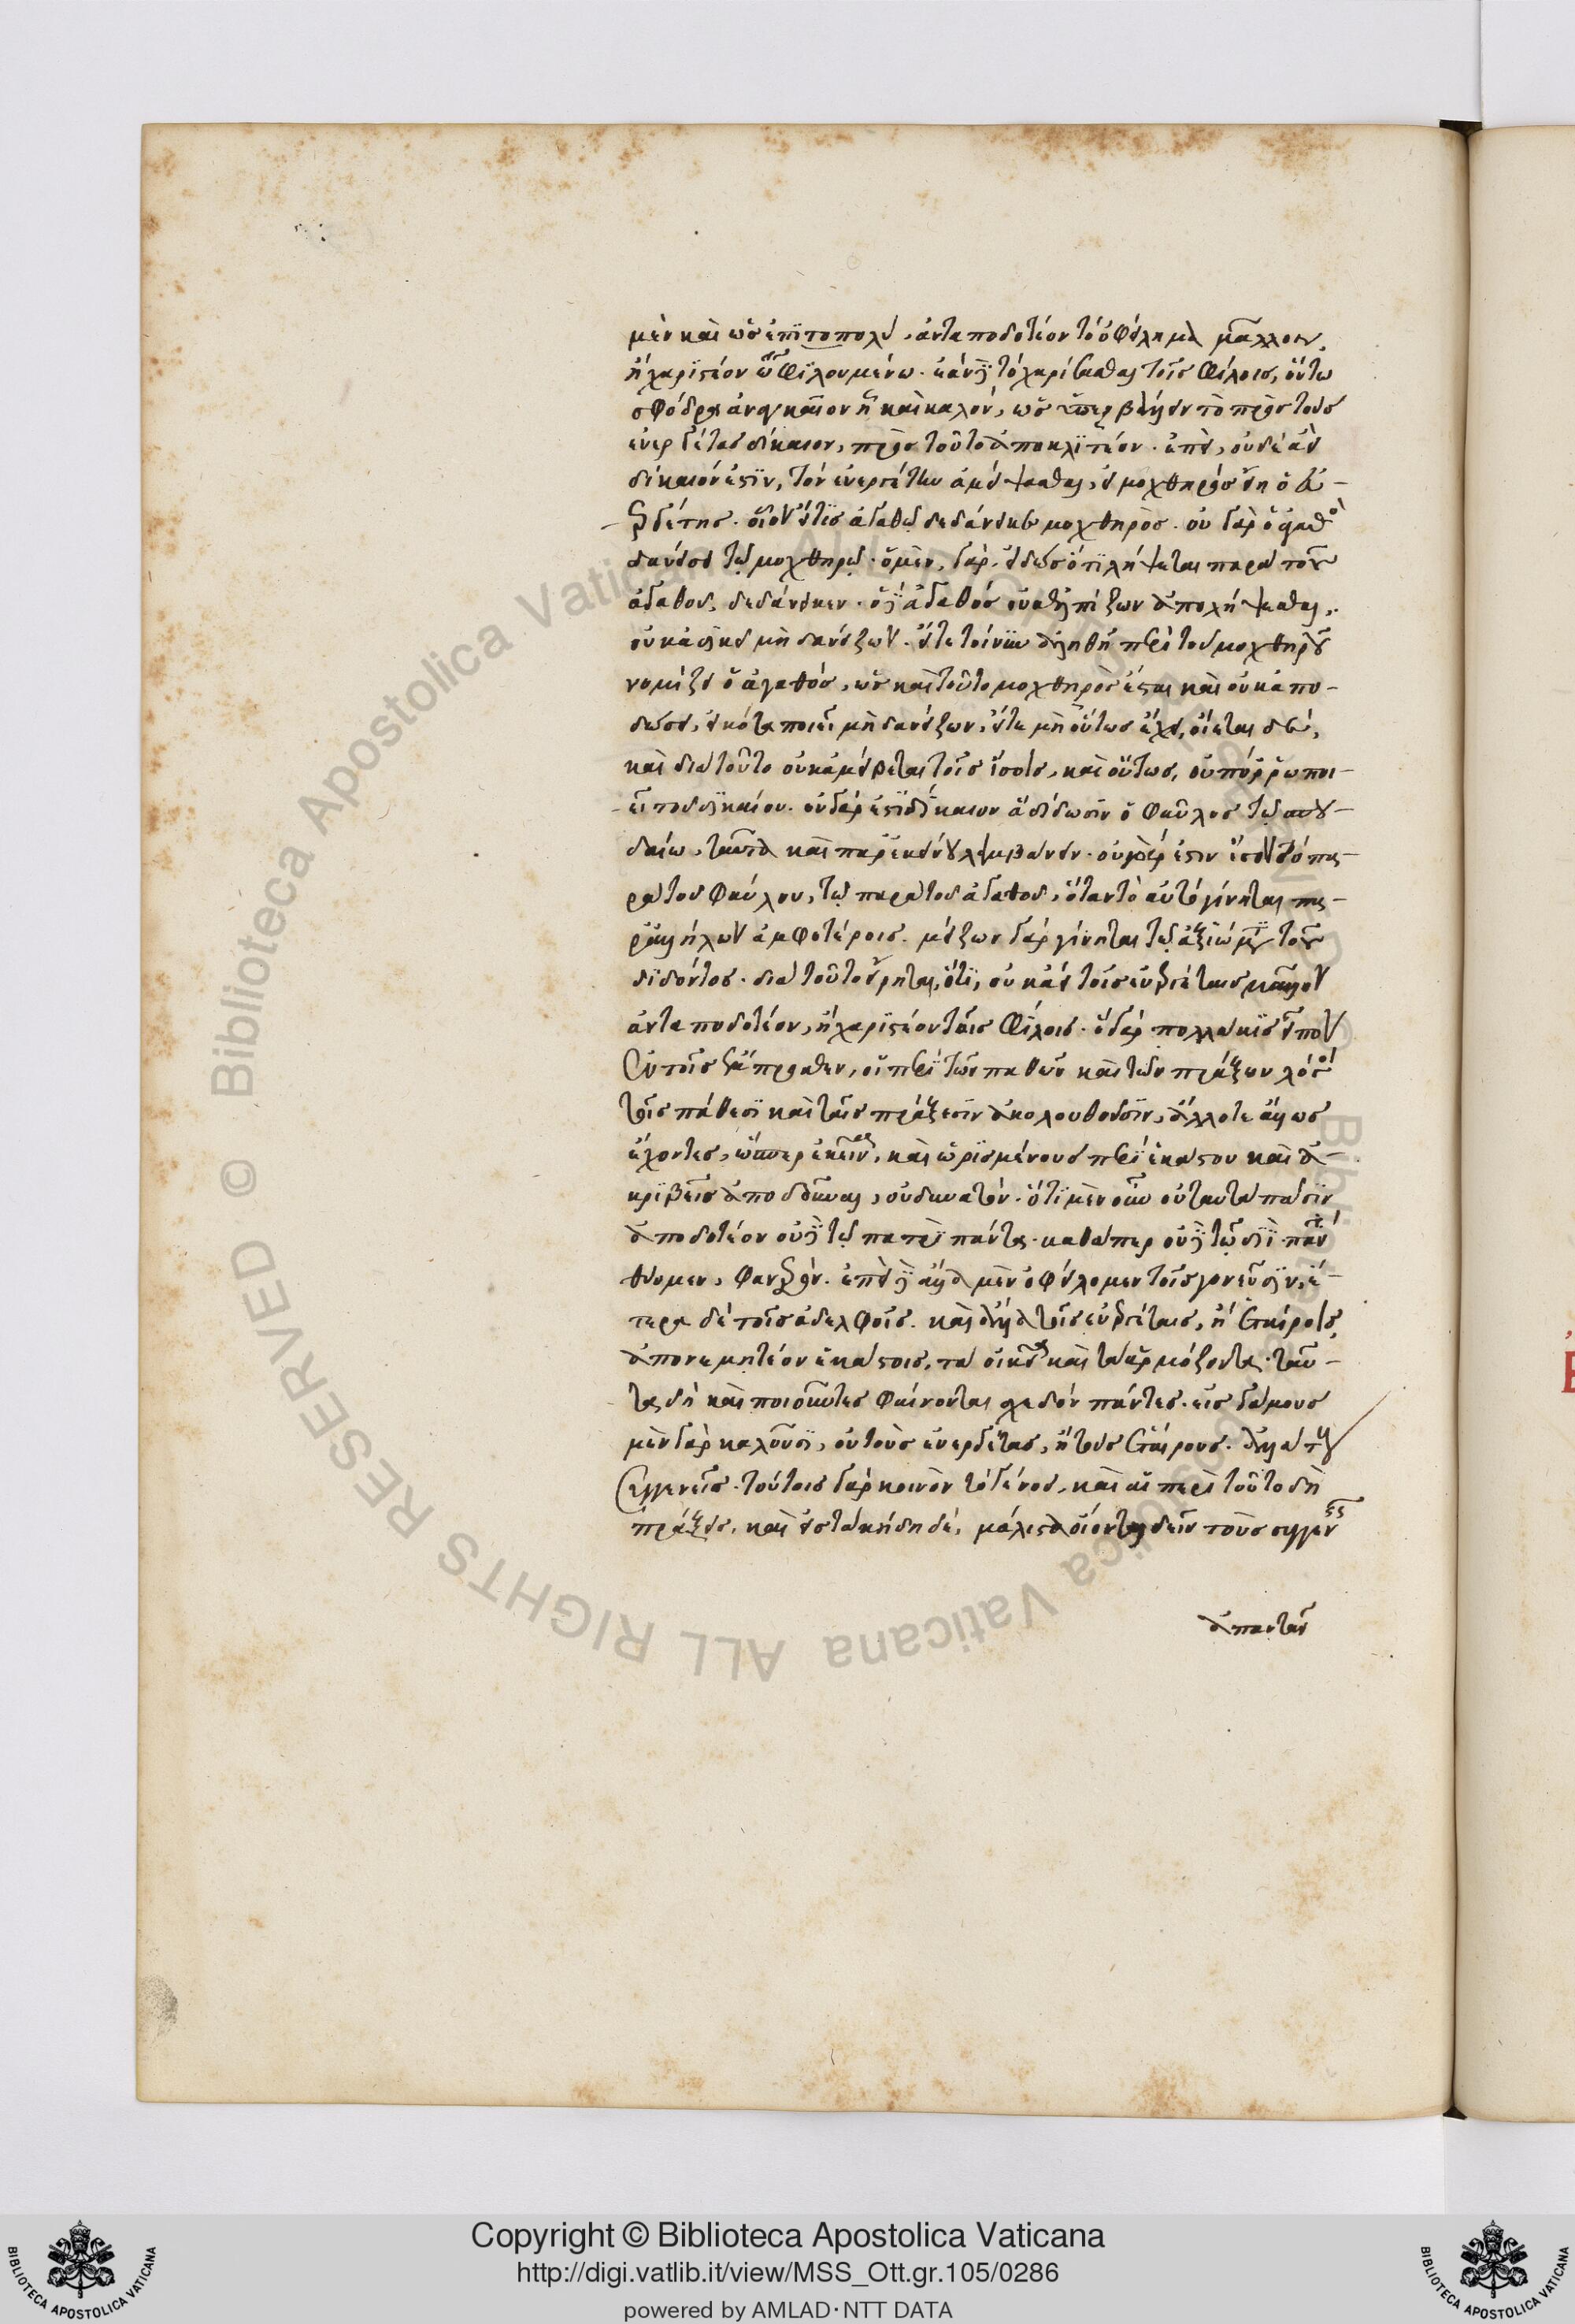 μὲν καὶ ὡς ἐπιτοπολύ, ἀνταποδοτέον τὸ ὀφείλημα μᾶλλον,
ἢ χαριστέον τῷ φιλουμένω. ἐὰν δὲ τὸ χαρίσασθαι τοῖς φίλοις, οὕτω
σφόδρα ἀναγκαῖον ἢ καὶ καλὸν, ὡς ὑπερβάλλειν τὸ πρὸς τοὺς
εὐεργέτας δίκαιον, πρὸς τοῦτο ἀποκλιτέον. ἐπεὶ, οὐδὲ ἀεὶ
δίκαιόν ἐστιν, τὸν εὐεργέτην ἀμείψασθαι, εἰ μοχθηρὸς εἴη ὁ εὐ-
εργέτης. οἷον εἴ τις ἀγαθῷ δεδάνεικε μοχθηρὸς. οὐ γὰρ ὁ ἀγαθὸς
δανείσει τῷ μοχθηρῷ. ὁ μὲν, γὰρ, εἰδὼς ὅτι λήψεται παρὰ τοῦ
ἀγαθοῦ, δεδάνεικεν. ὁ δὲ ἀγαθὸς οὐκ ἐλπίζων ἀπολήψεσθαι,
οὐκ ἀδικεῖ μὴ δανείζων. εἴτε τοίνυν ἀληθῆ περὶ τοῦ μοχθηροῦ
νομίζει ὁ ἀγαθός, ὡς καὶ τοῦτο μοχθηρὸς ἔσται καὶ οὐκ ἀπο-
δώσει, εἰκότα ποιεῖ μὴ δανείζων, εἴτε μὴ οὕτως ἔχει, οἴεται δὲ,
καὶ διὰ τοῦτο οὐκ ἀμείβεται τοῖς ἴσοις, καὶ οὕτως, οὐ πόρρω ποι-
εῖ τοῦ δικαίου. οὐ γάρ ἐστι δίκαιον ἃ δίδωσιν ὁ φαῦλος τῷ σπου-
δαίω, ταῦτα καὶ παρ' ἐκείνου λαμβάνειν. οὐ γάρ ἐστιν ἴσον τὸ πα-
ρὰ τοῦ φαύλου, τῷ παρὰ τοῦ ἀγαθοῦ, ὅταν τὸ αὐτὸ γίνηται πα-
ρ' ἀλλήλων ἀμφοτέροις. μεῖζον γὰρ γίνηται τῷ ἀξιώματι τοῦ
διδόντος. διὰ τοῦτο εἴρηται, ὅτι, οὐκ ἀεὶ τοῖς εὐεργέταις μᾶλλον
ἀνταποδοτέον, ἢ χαριστέον τοῖς φίλοις. ὃ γὰρ πολλάκις εἶπον
ἐν τοῖς ἔμπροσθεν, οἱ περὶ τῶν παθῶν καὶ τῶν πράξεων λόγοι
τοῖς πάθεσι καὶ ταῖς πράξεσιν ἀκολουθοῦσιν, ἄλλοτε ἄλλως
ἔχοντες, ὥσπερ ἐκεῖνα, καὶ ὡρισμένους περὶ ἑκάστου καὶ ἀ-
κριβεῖς ἀποδοῦναι, οὐ δυνατόν. ὅτι μὲν οὖν οὐ ταυτὰ πᾶσιν
ἀποδοτέον οὐδὲ τῷ πατρὶ πάντα. καθάπερ οὐδὲ τῷ διὶ πάντα
θύομεν, φανερόν. ἐπεὶ δὲ ἄλλα μὲν ὀφείλομεν τοῖς γονεῦσιν, ἕ-
τερα δὲ τοῖς ἀδελφοῖς. καὶ ἄλλα τοῖς εὐεργέταις, ἢ ἑταίροις,
ἀπονεμητέον ἑκάστοις, τὰ οἰκεῖα καὶ τὰ ἁρμόζοντα. ταῦ-
τα δὴ καὶ ποιοῦντες φαίνονται σχεδὸν πάντες. εἰς γάμους
μὲν γὰρ καλοῦσι, οὐ τοὺς εὐεργέτας, ἢ τοὺς ἑταίρους. ἀλλὰ τοὺς
συγγενεῖς. τούτοις γὰρ κοινὸν τὸ γένος, καὶ αἱ περὶ τοῦτο δὴ
πράξεις, καὶ εἰς τὰ κήδη δὲ, μάλιστα οἴονται δεῖν τοὺς συγγενεῖς
ἀπαντᾶν